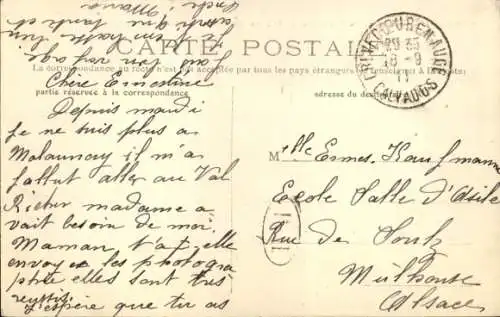 CARTE POSTALE
La correspondance au recto n'est pas acceptée par tous les pays étrangers
partie réservée à la correspondance
adresse du
CREVECŒUR EN AUGE
CALVADOS
18 - 9
Chère Ernestine
Depuis mardi
je ne suis plus a
Malaunay il m'a
fallut aller au Val
Richer madame a
vait besoin de moi.
Maman t'a t'elle
envoyez les photogra
phie elles sont très
reussis.
J'espère que tu as
fait bon voyage
Mlle Ernes. Kaufmann
Ecole Salle d'Asile
Rue de Soultz
Mulhouse
Alsace